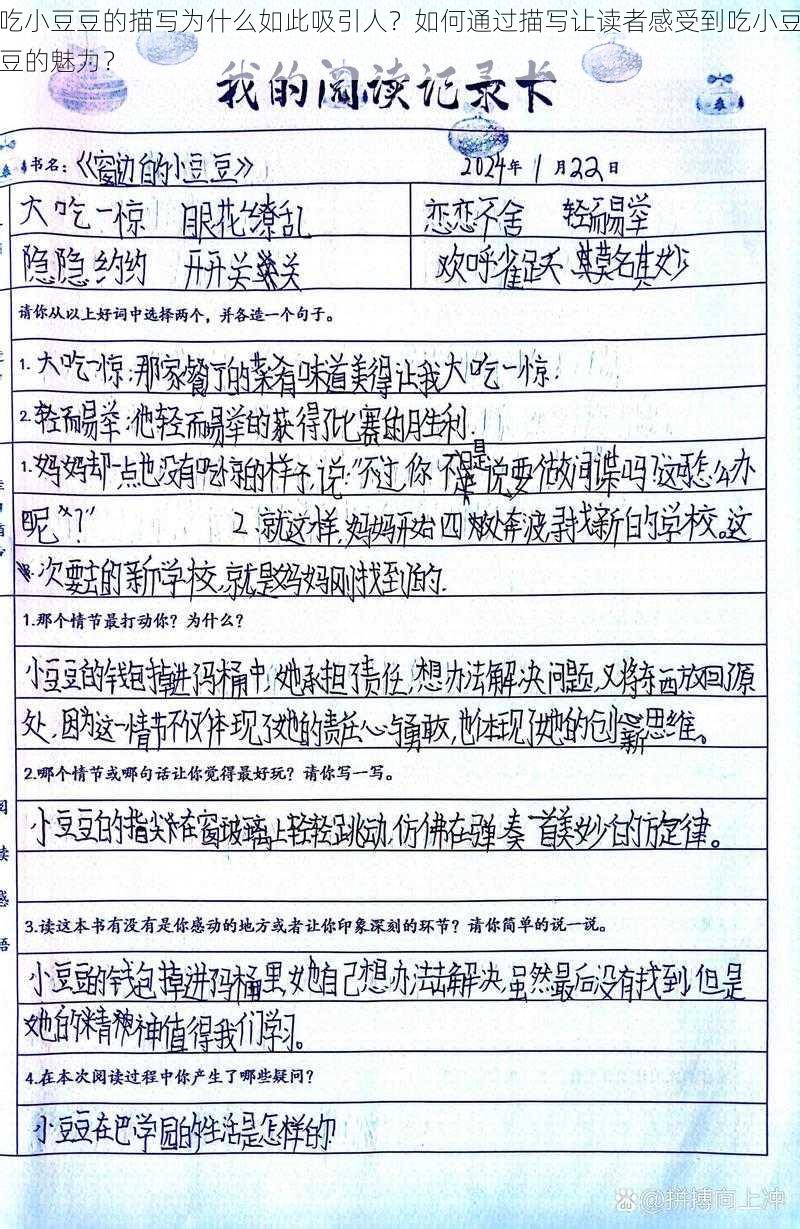 吃小豆豆的描写为什么如此吸引人？如何通过描写让读者感受到吃小豆
豆的魅力？
我的阅读记录卡
书名：《窗边的小豆豆》 2024年1月22日
大吃一惊 眼花缭乱 恋恋不舍 轻而易举
隐隐约约 开开关关 欢呼雀跃 莫名其妙
请你从以上好词中选择两个，并各造一个句子。
1.大吃一惊：那家餐厅的菜肴味道美得让我大吃一惊.
2.轻而易举：他轻而易举的获得了比赛的胜利.
1.妈妈却一点也没有吃惊的样子，说：“不过，你不是说要做间谍吗？这可怎么办
呢？” 2.就这样，妈妈开始四处奔波，寻找新的学校。这
次要去的新学校，就是妈妈刚找到的.
1.那个情节最打动你？为什么？
小豆豆的钱包掉进码桶中，她承担了责任，想办法解决问题，又将东西放回了原
处，因为这一情节不仅体现了她的责任心与勇敢，也体现了她的创新思维。
2.哪个情节或哪句话让你觉得最好玩？请你写一写。
小豆豆的指尖在窗玻璃上轻轻跳动，仿佛在弹奏一首美妙的旋律。
3.读这本书有没有是你感动的地方或者让你印象深刻的环节？请你简单的说一说。
小豆豆的钱包掉进码桶里，她自己想办法去解决，虽然最后没有找到，但是
她的精神值得我们学习。
4.在本次阅读过程中你产生了哪些疑问？
小豆豆在巴学园的生活是怎样的？
阅
读
感
悟
@拼搏向上冲